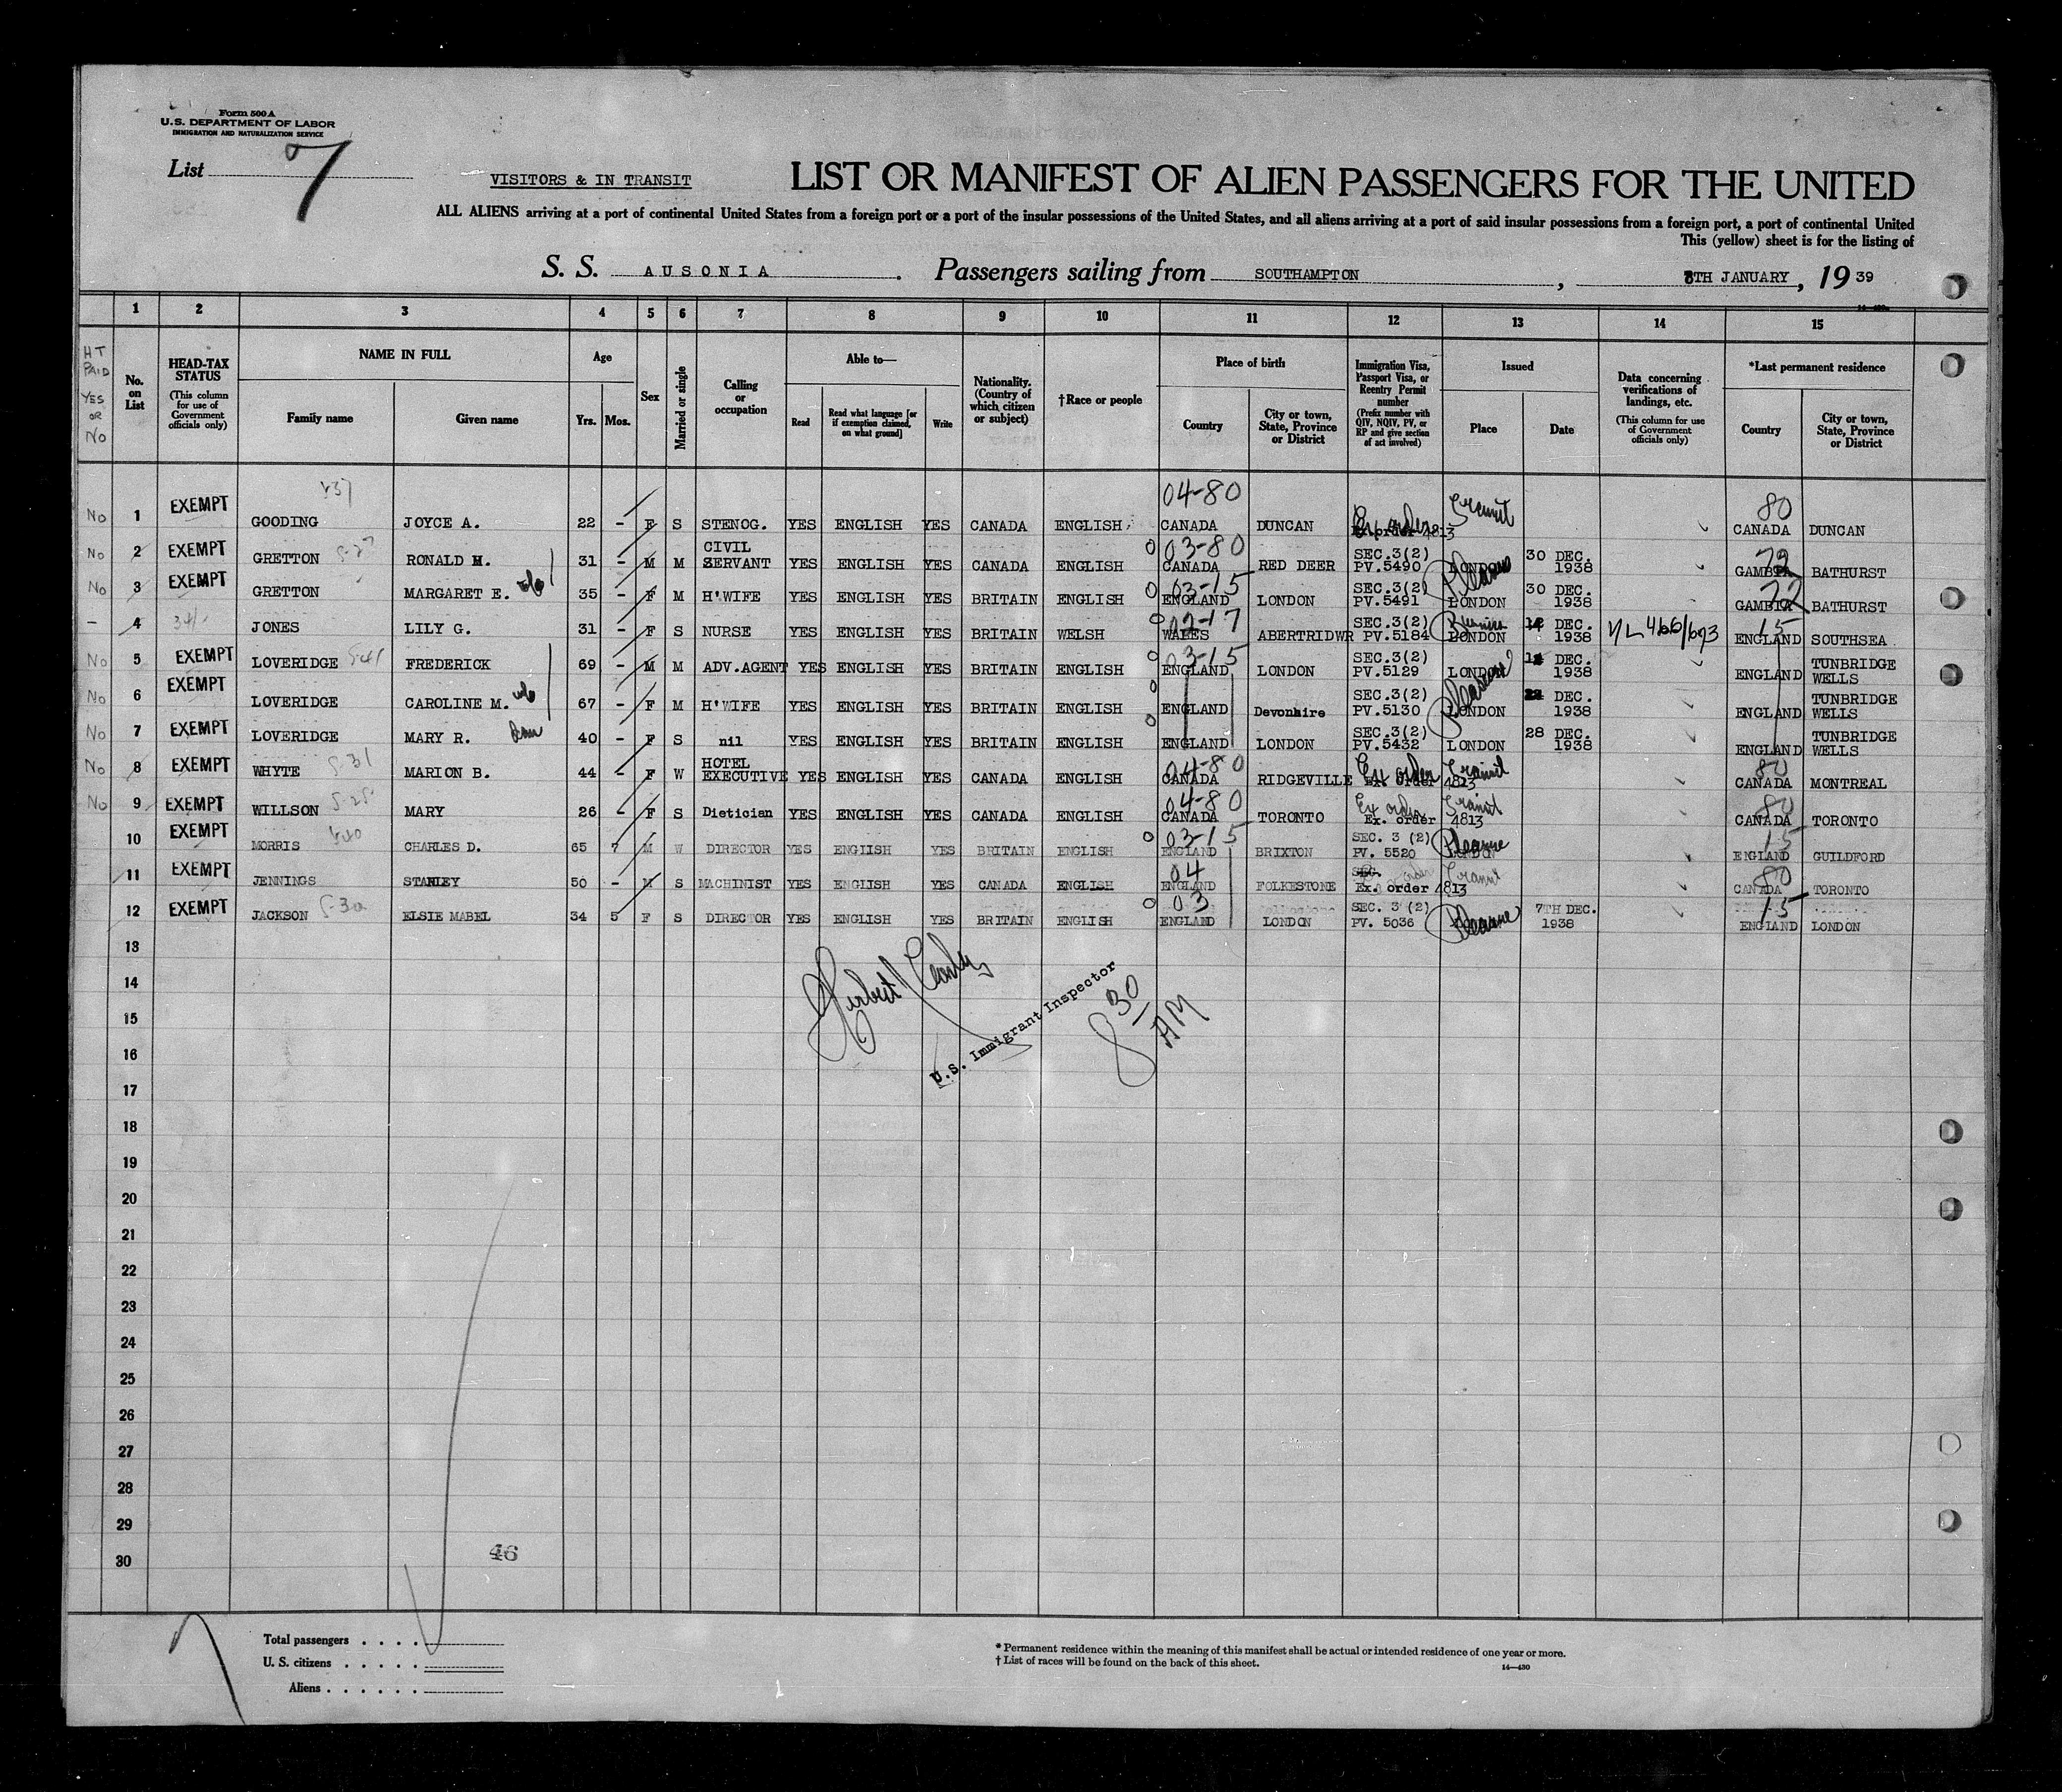 Form 500 A
U.S. DEPARTMENT OF LABOR
IMMIGRATION AND NATURALIZATION SERVICE
List 7
VISITORS & IN TRANSIT
LIST OR MANIFEST OF ALIEN PASSENGERS FOR THE UNITED
ALL ALIENS arriving at a port of continental United States from a foreign port or a port of the insular possessions of the United States, and all aliens arriving at a port of said insular possessions from a foreign port, a port of continental United
This (yellow) sheet is for the listing of
S. S. AUSONIA. Passengers sailing from SOUTHAMPTON, 8TH JANUARY, 19 39
1 2 3 4 5 6 7 8 9 10 11 12 13 14 15
HT PAID YES OR NO
No. on List
HEAD-TAX STATUS (This column for use of Government officials only)
NAME IN FULL Family name Given name
Age Yrs. Mos.
Sex
Married or single
Calling or occupation
Able to— Read Read what language [or if exemption claimed, on what ground] Write
Nationality. (Country of which citizen or subject)
†Race or people
Place of birth Country City or town, State, Province or District
Immigration Visa, Passport Visa, or Reentry Permit number (Prefix number with QIV, NQIV, PV, or RP and give section of act involved)
Issued Place Date
Data concerning verifications of landings, etc. (This column for use of Government officials only)
*Last permanent residence Country City or town, State, Province or District
No 1 EXEMPT GOODING JOYCE A. 22 - F S STENOG. YES ENGLISH YES CANADA ENGLISH 04-80 CANADA DUNCAN Ex. order 4813 Transit 80 CANADA DUNCAN
No 2 EXEMPT GRETTON RONALD H. 31 - M M CIVIL SERVANT YES ENGLISH YES CANADA ENGLISH 03-80 CANADA RED DEER SEC.3(2) PV.5490 LONDON 30 DEC. 1938 GAMBIA BATHURST
No 3 EXEMPT GRETTON MARGARET E. 35 - F M H'WIFE YES ENGLISH YES BRITAIN ENGLISH 03-15 ENGLAND LONDON SEC.3(2) PV.5491 LONDON 30 DEC. 1938 GAMBIA BATHURST
- 4 JONES LILY G. 31 - F S NURSE YES ENGLISH YES BRITAIN WELSH 02-17 WALES ABERTRIDWR SEC.3(2) PV.5184 LONDON DEC. 1938 15 ENGLAND SOUTHSEA
No 5 EXEMPT LOVERIDGE FREDERICK 69 - M M ADV.AGENT YES ENGLISH YES BRITAIN ENGLISH 03-15 ENGLAND LONDON SEC.3(2) PV.5129 LONDON DEC. 1938 ENGLAND TUNBRIDGE WELLS
No 6 EXEMPT LOVERIDGE CAROLINE M. 67 - F M H'WIFE YES ENGLISH YES BRITAIN ENGLISH ENGLAND Devonhire SEC.3(2) PV.5130 LONDON DEC. 1938 ENGLAND TUNBRIDGE WELLS
No 7 EXEMPT LOVERIDGE MARY R. 40 - F S nil YES ENGLISH YES BRITAIN ENGLISH ENGLAND LONDON SEC.3(2) PV.5432 LONDON 28 DEC. 1938 ENGLAND TUNBRIDGE WELLS
No 8 EXEMPT WHYTE MARION B. 44 - F W HOTEL EXECUTIVE YES ENGLISH YES CANADA ENGLISH 04-80 CANADA RIDGEVILLE Ex. order 4813 Transit 80 CANADA MONTREAL
No 9 EXEMPT WILLSON MARY 26 - F S Dietician YES ENGLISH YES CANADA ENGLISH 04-80 CANADA TORONTO Ex. order 4813 Transit 80 CANADA TORONTO
10 EXEMPT MORRIS CHARLES D. 65 7 M W DIRECTOR YES ENGLISH YES BRITAIN ENGLISH 03-15 ENGLAND BRIXTON SEC. 3 (2) PV. 5520 15 ENGLAND GUILDFORD
11 EXEMPT JENNINGS STANLEY 50 - M S MACHINIST YES ENGLISH YES CANADA ENGLISH 04 ENGLAND FOLKESTONE Ex. order 4813 Transit 80 CANADA TORONTO
12 EXEMPT JACKSON ELSIE MABEL 34 5 F S DIRECTOR YES ENGLISH YES BRITAIN ENGLISH 03 ENGLAND LONDON SEC. 3 (2) PV. 5036 7TH DEC. 1938 15 ENGLAND LONDON
13
14
U.S. Immigrant Inspector
8 30 AM
15
16
17
18
19
20
21
22
23
24
25
26
27
28
29
30
46
Total passengers
U. S. citizens
Aliens
* Permanent residence within the meaning of this manifest shall be actual or intended residence of one year or more.
† List of races will be found on the back of this sheet.
14—430